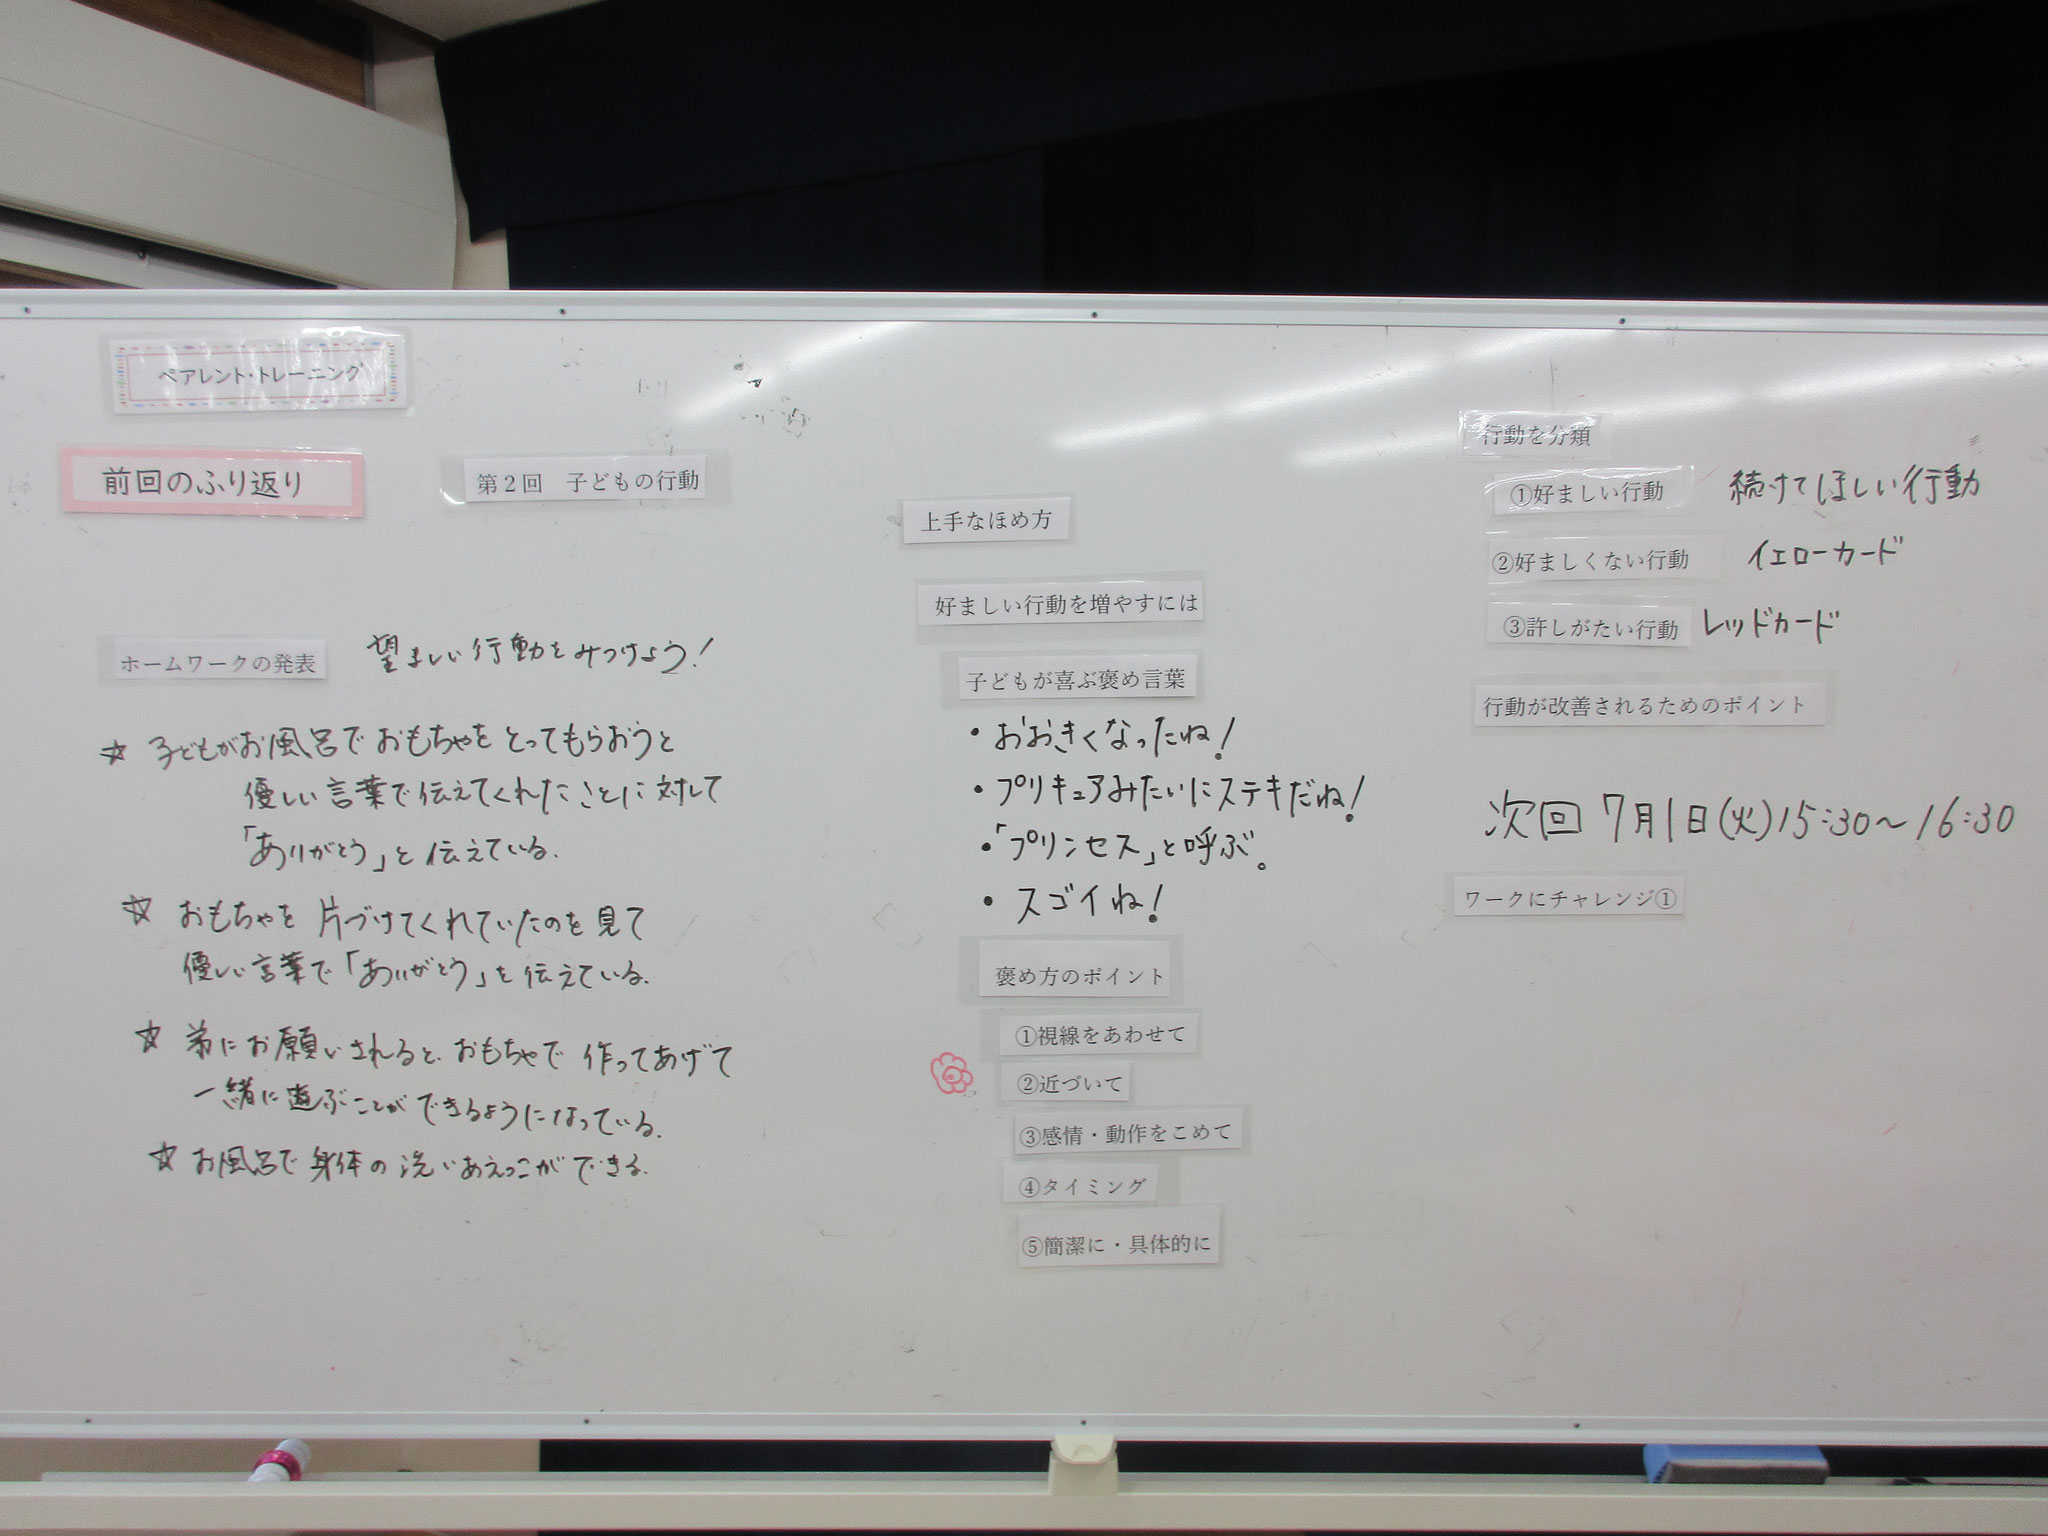 ペアレント・トレーニング
前回のふり返り
第2回 子どもの行動
ホームワークの発表 望ましい行動をみつけよう!
☆ 子どもがお風呂でおもちゃをとってもらおうと
優しい言葉で伝えてくれたことに対して
「ありがとう」と伝えている.
☆ おもちゃを片づけてくれていたのを見て
優しい言葉で「ありがとう」を伝えている.
☆ 弟にお願いされると、おもちゃで作ってあげて
一緒に遊ぶことができるようになっている.
☆ お風呂で身体の洗いあえっこができる.
上手なほめ方
好ましい行動を増やすには
子どもが喜ぶ褒め言葉
・おおきくなったね!
・プリキュアみたいにステキだね!
・「プリンセス」と呼ぶ。
・スゴイね!
褒め方のポイント
①視線をあわせて
②近づいて
③感情・動作をこめて
④タイミング
⑤簡潔に・具体的に
行動を分類
①好ましい行動 続けてほしい行動
②好ましくない行動 イエローカード
③許しがたい行動 レッドカード
行動が改善されるためのポイント
次回 7月1日(火)15:30~16:30
ワークにチャレンジ①